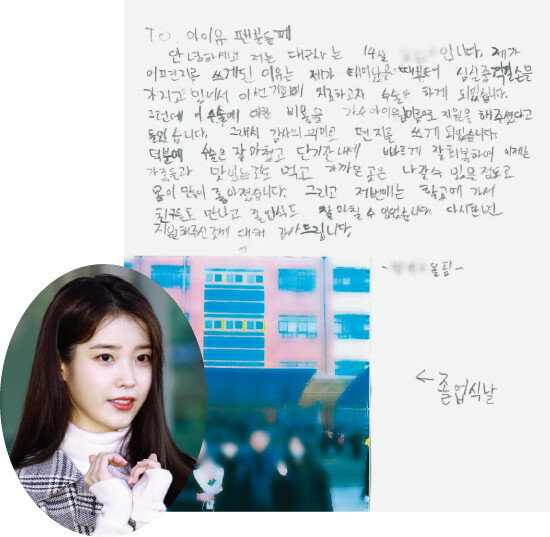 To 아이유 팬분들께
안녕하세요 저는 대구사는 14살 입니다. 제가
이편지를 쓰게된 이유는 제가 태어났을때부터 심실중격결손을
가지고 있어서 이번기회에 치료하고자 수술을 하게 되었습니다.
그런데 이 수술에 대한 비용을 가수아이유님이름으로 지원을 해주셨다고
들었습니다. 그래서 감사의 의미로 편지를 쓰게 되었습니다.
덕분에 수술은 잘 마쳤고 단기간내에 빠르게 잘회복하여 이제는
가족들과 맛있는것도 먹고 가까운 곳은 나갈수 있을정도로
몸이 많이 좋아졌습니다. 그리고 저번에는 학교에 가서
친구들도 만나고 졸업식도 잘 마칠 수 있었습니다. 다시한번
지원해주신것에 대해 감사드립니다.
- 올림 -
← 졸업식날